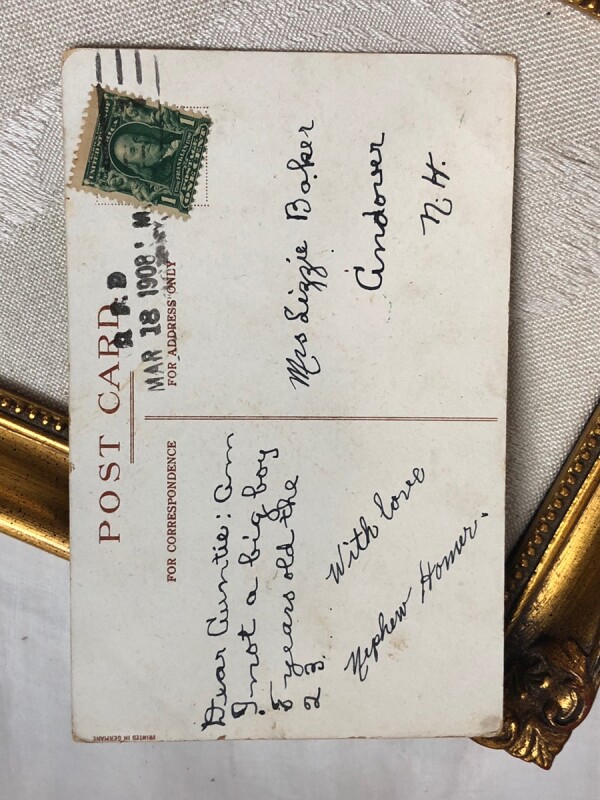 POST CARD
FOR CORRESPONDENCE
FOR ADDRESS ONLY
R.F.D
MAR 18 1908
1
1
Dear Auntie: Am
I not a big boy
5 years old the
23....
With love
Nephew Homer.
Mrs Lizzie Baker
Andover
N.H.
PRINTED IN GERMANY